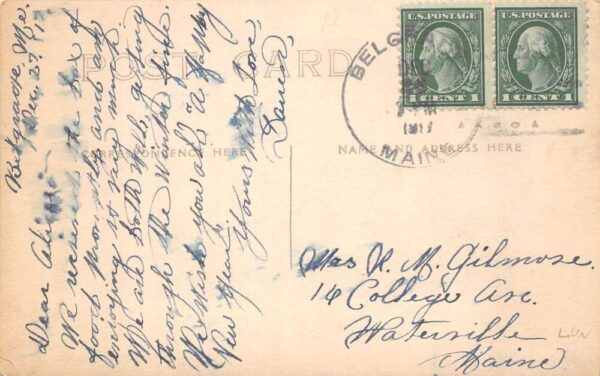 POST CARD
CORRESPONDENCE HERE
NAME AND ADDRESS HERE
U.S. POSTAGE
1 CENT 1
U.S. POSTAGE
1 CENT 1
BELG
MAINE
1917
12
Belgrade, Me.
Dec. 27, 17
Dear
We received the box of
good Monday and are
enjoying it very much
We are both well getting
through the Winter fine.
We wish you all "A Happy
New Year".
Yours With Love,
Mrs. H. M. Gilmore.
14 College Ave.
Waterville
Maine
LUN